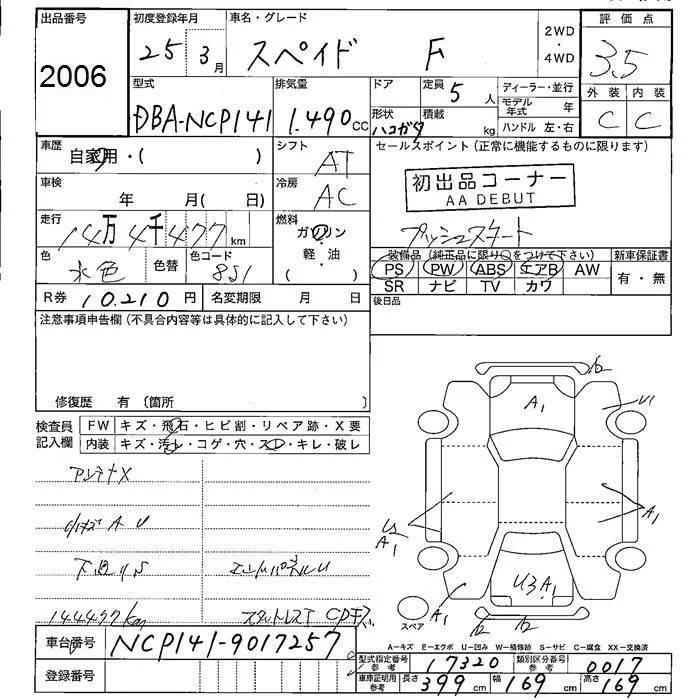 出品番号
2006
初度登録年月
25 3月
車名・グレード
スペイド F
2WD・4WD
評価点
3.5
外装 内装
C C
型式
DBA-NCP141
排気量
1.490cc
ドア
形状
ハコガタ
定員
5人
積載
kg
ディーラー・並行
モデル年式 年
ハンドル 左・右
車歴
自家用・( )
シフト
AT
セールスポイント(正常に機能するものに限ります)
初出品コーナー
AA DEBUT
プッシュスタート
車検
年 月( 日)
冷房
AC
走行
14万4千477km
燃料
ガソリン
軽・油
( )
色
水色
色替
色コード
8S1
装備品(純正品に限り○をつけて下さい)
PS PW ABS エアB AW
SR ナビ TV カワ
新車保証書
有・無
R券 10.210円
名変期限 月 日
後日品
注意事項申告欄(不具合内容等は具体的に記入して下さい)
修復歴 有 〔箇所 〕
検査員記入欄
FW キズ・飛石・ヒビ割・リペア跡・X要
内装 キズ・汚レ・コゲ・穴・スレ・キレ・破レ
アンテナX
A U
下廻りS
144477km
NCP141-9017257
車台番号
登録番号
A1
U1
A1
A1
U3 A1
A1
スペア
A-キズ E-エクボ U-凹み W-補修跡 S-サビ C-腐食 XX-交換済
型式指定番号
参考
17320
類別区分番号
参考
0017
車庫証明用
参考
長さ 399cm
幅 169cm
高さ 169cm